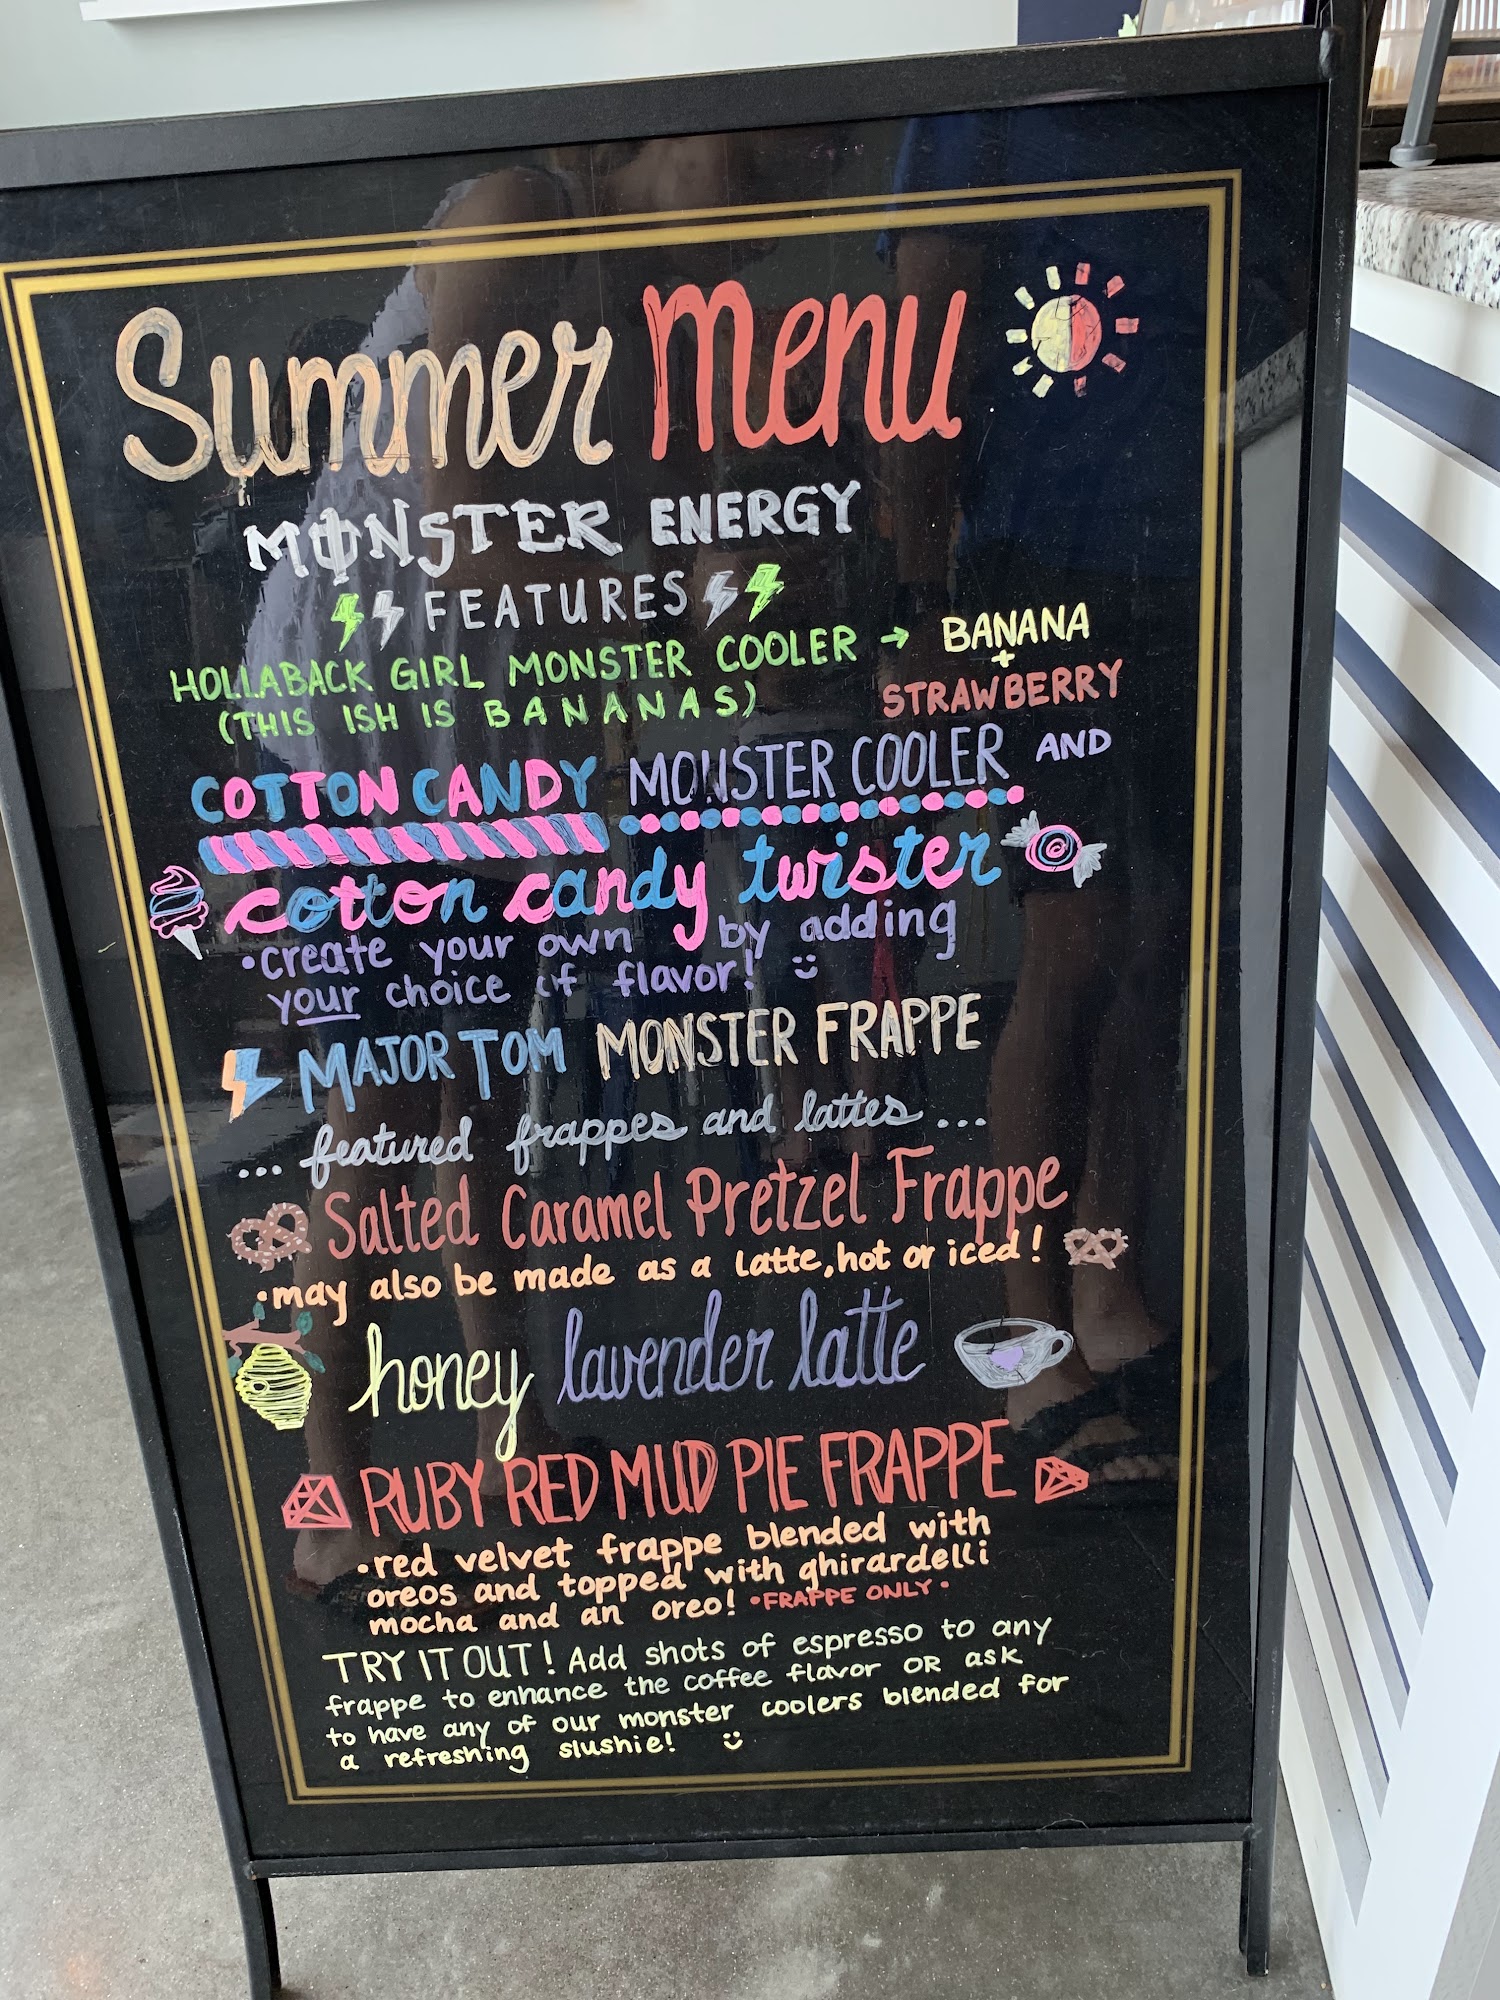 Summer Menu
MONSTER ENERGY
FEATURES
HOLLABACK GIRL MONSTER COOLER → BANANA
+
(THIS ISH IS BANANAS) STRAWBERRY
COTTON CANDY MONSTER COOLER AND
cotton candy twister
•create your own by adding
your choice of flavor! :)
MAJOR TOM MONSTER FRAPPE
... featured frappes and lattes ...
Salted Caramel Pretzel Frappe
•may also be made as a latte, hot or iced!
honey lavender latte
RUBY RED MUD PIE FRAPPE
•red velvet frappe blended with
oreos and topped with ghirardelli
mocha and an oreo! •FRAPPE ONLY•
TRY IT OUT! Add shots of espresso to any
frappe to enhance the coffee flavor OR ask
to have any of our monster coolers blended for
a refreshing slushie! :)